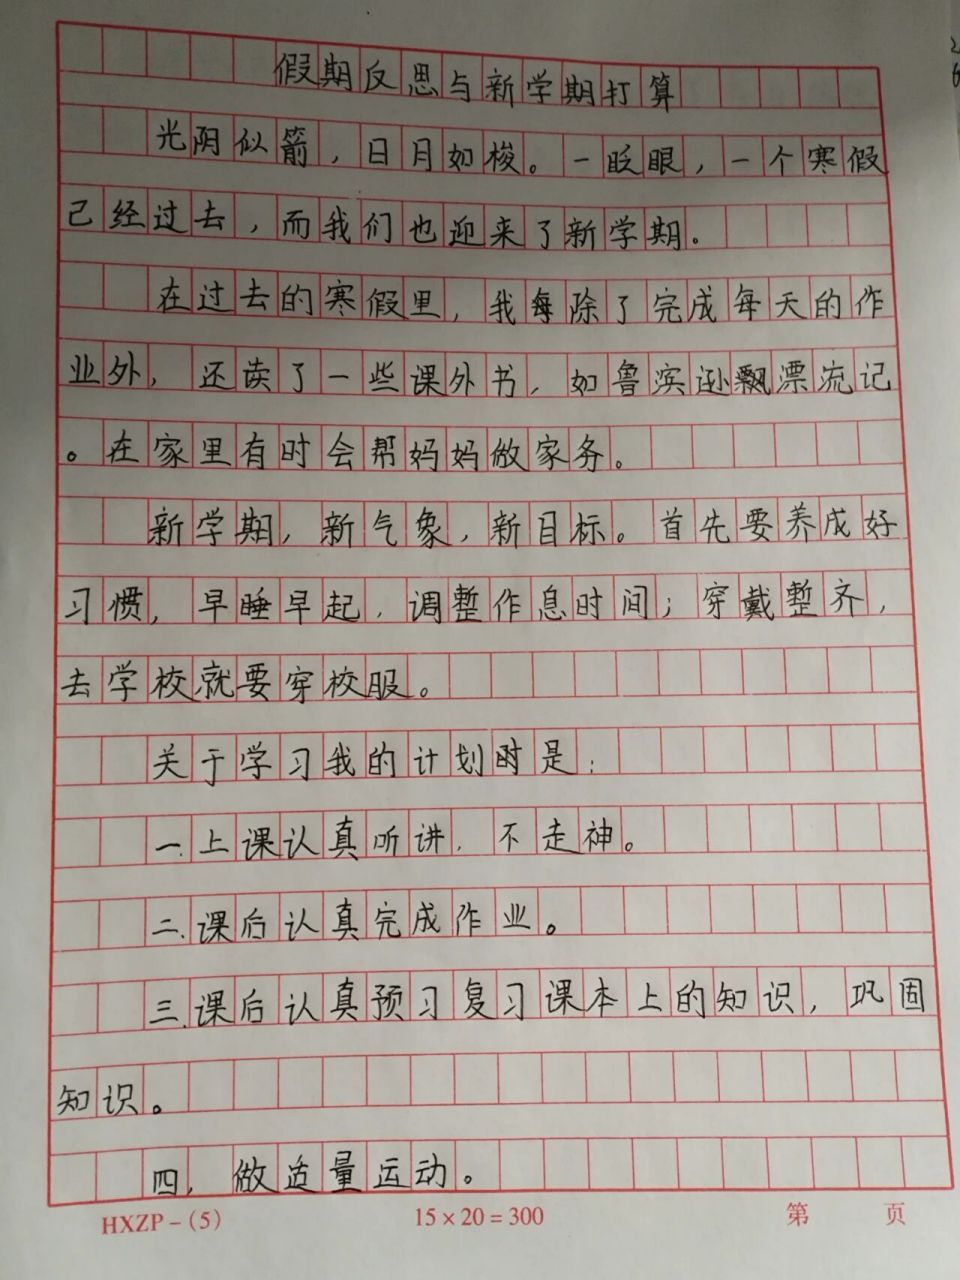 假期反思与新学期打算
光阴似箭，日月如梭。一眨眼，一个寒假
己经过去，而我们也迎来了新学期。
在过去的寒假里，我每除了完成每天的作
业外，还读了一些课外书，如鲁滨逊飘漂流记
。在家里有时会帮妈妈做家务。
新学期，新气象，新目标。首先要养成好
习惯，早睡早起，调整作息时间；穿戴整齐，
去学校就要穿校服。
关于学习我的计划时是：
一.上课认真听讲，不走神。
二.课后认真完成作业。
三.课后认真预习复习课本上的知识，巩固
知识。
四，做适量运动。
HXZP-(5) 15×20=300 第 页